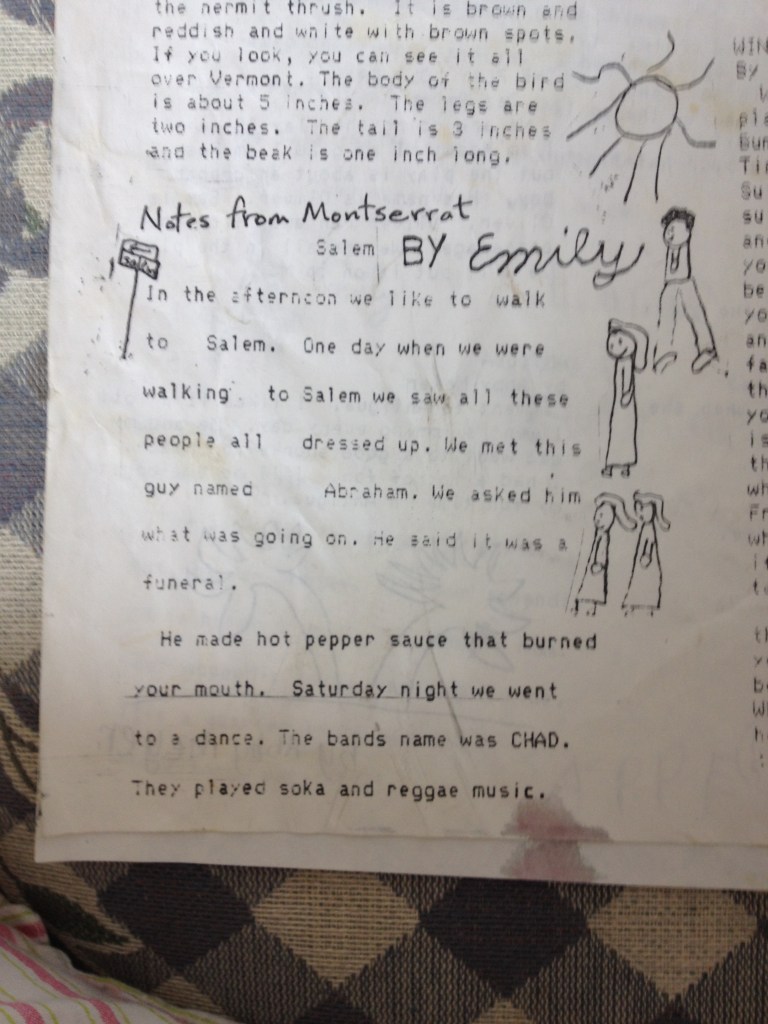 the hermit thrush. It is brown and
reddish and white with brown spots.
If you look, you can see it all
over Vermont. The body of the bird
is about 5 inches. The legs are
two inches. The tail is 3 inches
and the beak is one inch long.
Notes from Montserrat
Salem BY Emily
In the afternoon we like to walk
to Salem. One day when we were
walking to Salem we saw all these
people all dressed up. We met this
guy named Abraham. We asked him
what was going on. He said it was a
funeral.
He made hot pepper sauce that burned
your mouth. Saturday night we went
to a dance. The bands name was CHAD.
They played soka and reggae music.
WIN
By
pla
Su
su
an
yo
be
yo
an
fa
th
yo
is
th
wh
Fr
wh